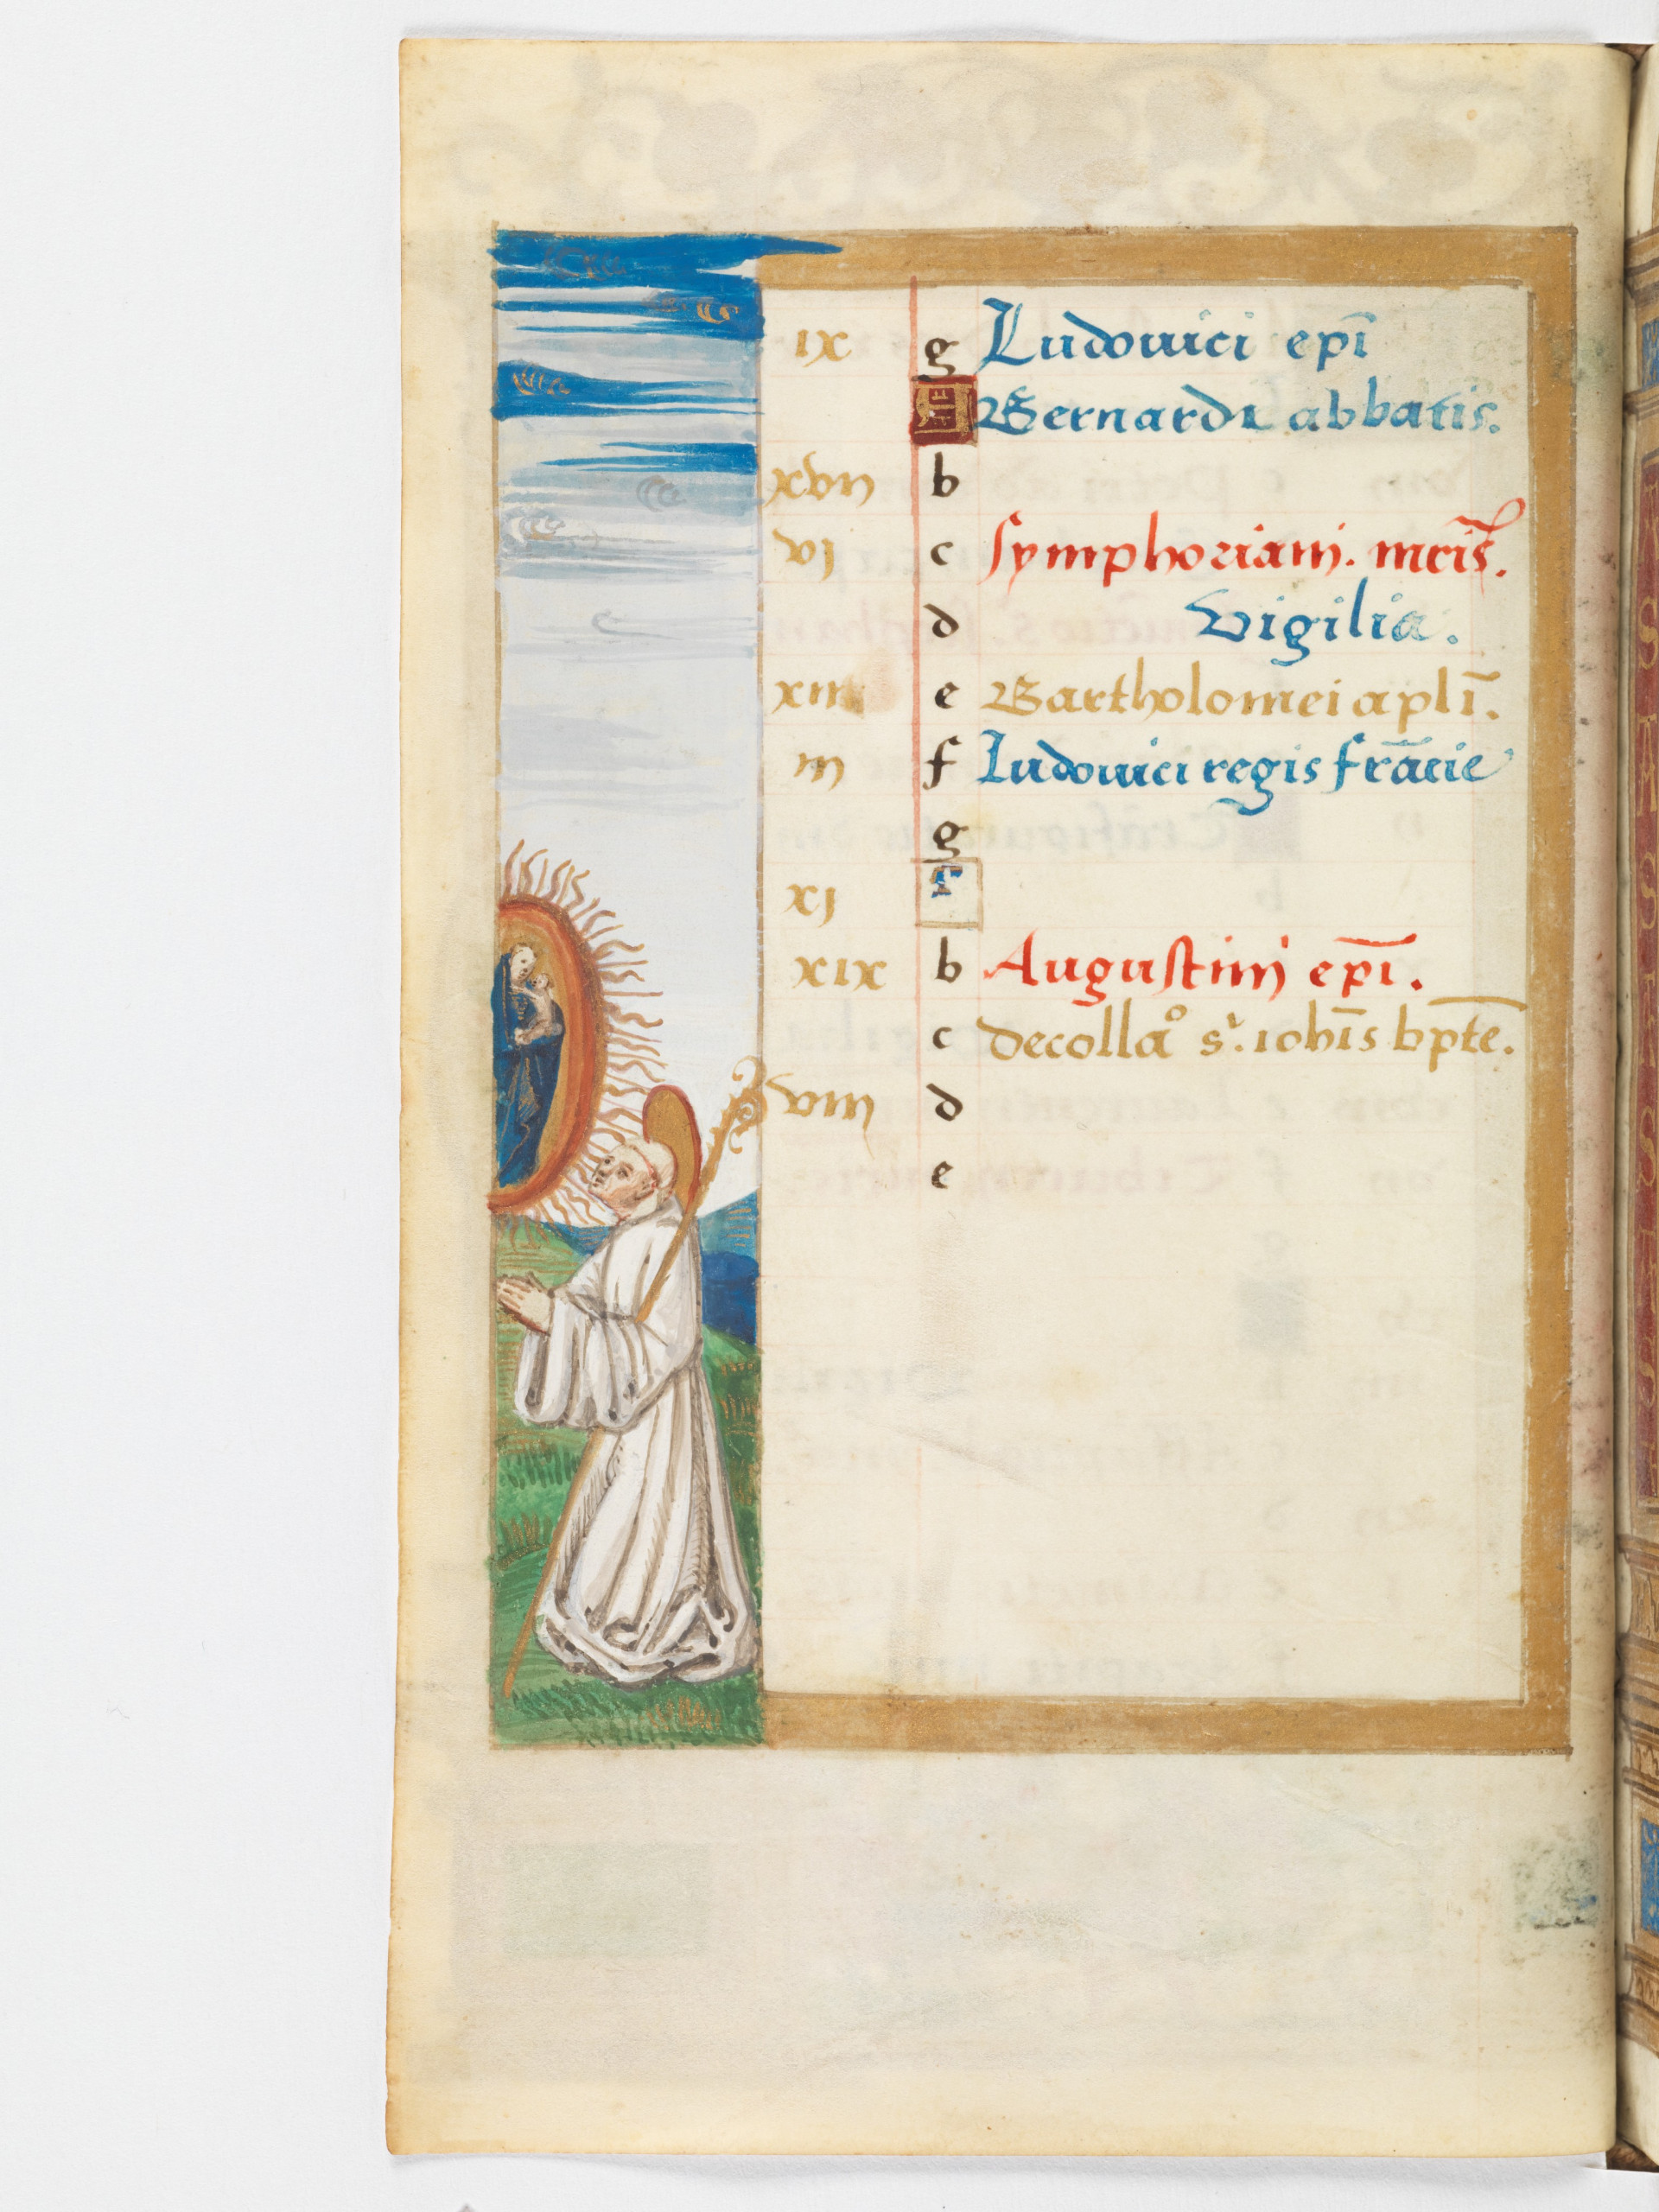 ix g Ludouici ep̄i
A Bernardi abbatis.
xvii b
vj c Symphoriani. mr̄is.
d Vigilia.
xiiii e Bartholomei apl̄i.
iii f Ludouici regis frācie
g
xj
xix b Augustini ep̄i.
c decollaº s. iohīs bp̄te.
viii d
e